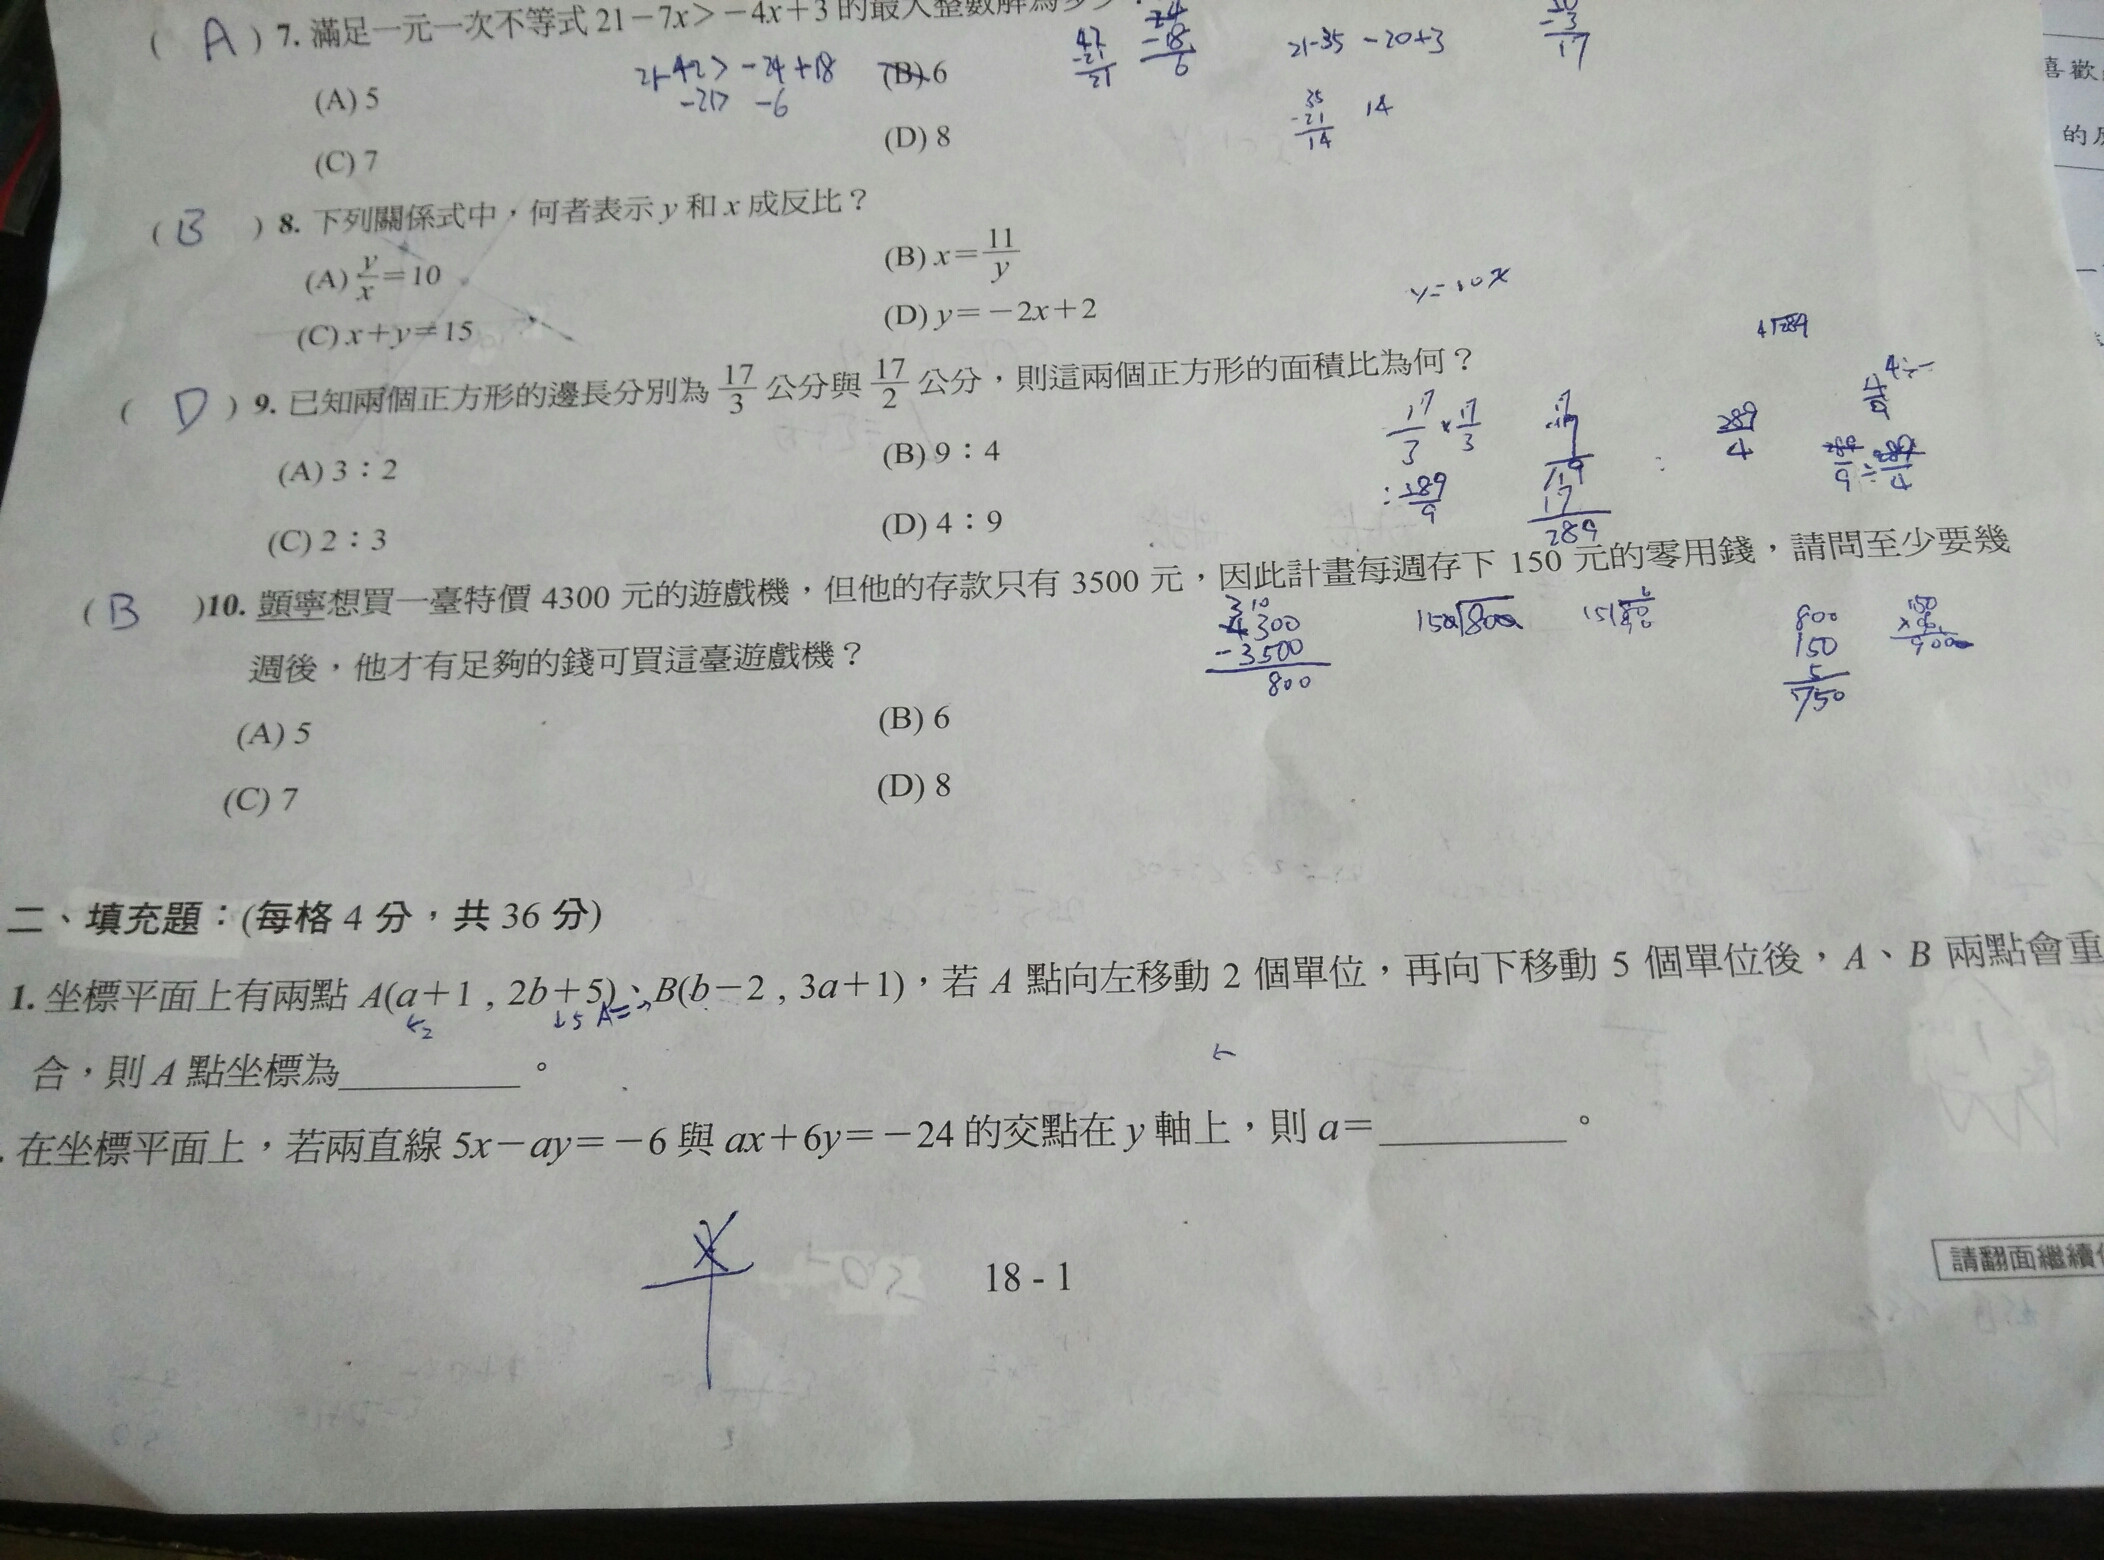 ( A ) 7. 滿足一元一次不等式 21－7x＞－4x＋3 的最大整數解為多少
(A) 5
(B) 6
(C) 7
(D) 8
21-42＞ -24+18
-21＞ -6
42
-21
21
24
-18
6
21-35 -20+3
-3
17
35
-21
14
14
( B ) 8. 下列關係式中，何者表示 y 和 x 成反比？
(A) y/x＝10
(B) x＝11/y
(C) x＋y＝15
(D) y＝－2x＋2
y=10x
( D ) 9. 已知兩個正方形的邊長分別為 17/3 公分與 17/2 公分，則這兩個正方形的面積比為何？
(A) 3：2
(B) 9：4
(C) 2：3
(D) 4：9
17/3 × 17/3
: 289/9
119
17
289
:
289/4
4/9
( B )10. 顗寧想買一臺特價 4300 元的遊戲機，但他的存款只有 3500 元，因此計畫每週存下 150 元的零用錢，請問至少要幾
週後，他才有足夠的錢可買這臺遊戲機？
(A) 5
(B) 6
(C) 7
(D) 8
3 10
4300
-3500
800
150 800
800
150
5
750
150
900
二、填充題：(每格 4 分，共 36 分)
1. 坐標平面上有兩點 A(a＋1 , 2b＋5)、B(b－2 , 3a＋1)，若 A 點向左移動 2 個單位，再向下移動 5 個單位後，A、B 兩點會重
←2
↓5
A=
合，則 A 點坐標為＿＿＿＿＿。
. 在坐標平面上，若兩直線 5x－ay＝－6 與 ax＋6y＝－24 的交點在 y 軸上，則 a＝＿＿＿＿＿。
18 - 1
請翻面繼續
喜歡
的